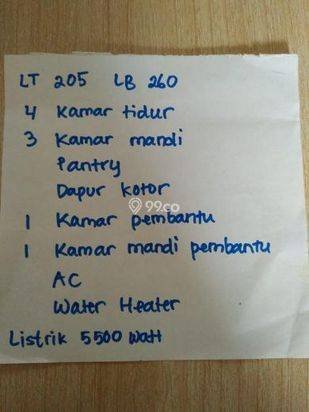 LT 205 LB 260
4 Kamar tidur
3 Kamar mandi
Pantry
Dapur kotor
99.co
1 Kamar pembantu
1 Kamar mandi pembantu
AC
Water Heater
Listrik 5500 Watt